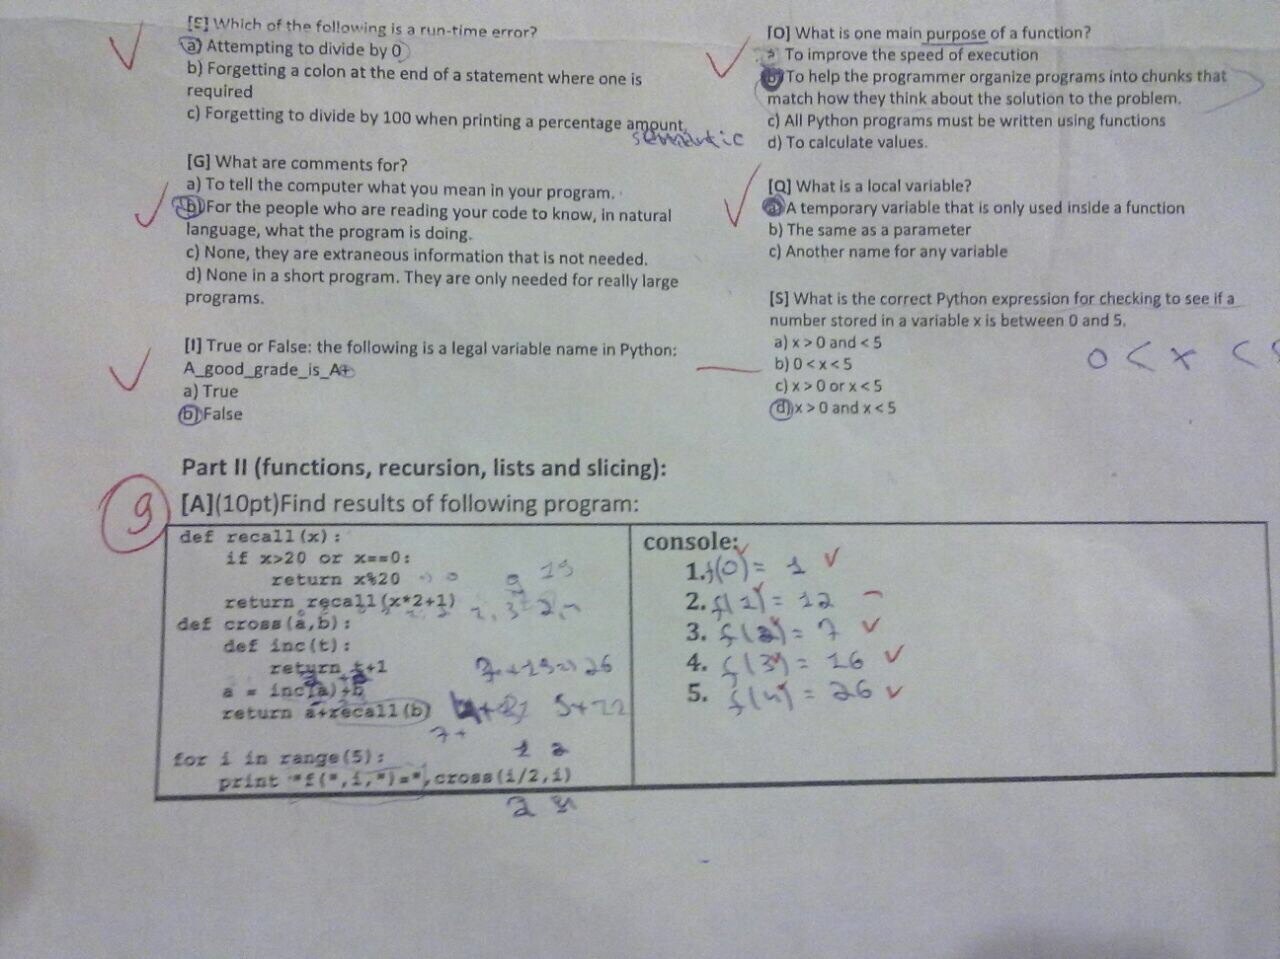 [E] Which of the following is a run-time error?
a) Attempting to divide by 0
b) Forgetting a colon at the end of a statement where one is
required
c) Forgetting to divide by 100 when printing a percentage amount.
semantic
[G] What are comments for?
a) To tell the computer what you mean in your program.
b) For the people who are reading your code to know, in natural
language, what the program is doing.
c) None, they are extraneous information that is not needed.
d) None in a short program. They are only needed for really large
programs.
[I] True or False: the following is a legal variable name in Python:
A_good_grade_is_A+
a) True
b) False
[O] What is one main purpose of a function?
a To improve the speed of execution
b) To help the programmer organize programs into chunks that
match how they think about the solution to the problem.
c) All Python programs must be written using functions
d) To calculate values.
[Q] What is a local variable?
a) A temporary variable that is only used inside a function
b) The same as a parameter
c) Another name for any variable
[S] What is the correct Python expression for checking to see if a
number stored in a variable x is between 0 and 5.
a) x > 0 and < 5
b) 0 < x < 5
c) x > 0 or x < 5
d) x > 0 and x < 5
0 < x <
Part II (functions, recursion, lists and slicing):
9
[A](10pt)Find results of following program:
def recall(x):
if x>20 or x==0:
return x%20
return recall(x*2+1)
def cross(a,b):
def inc(t):
return t+1
a = inc(a)+b
return a+recall(b)
for i in range(5):
print "f(",i,")=",cross(i/2,i)
7+19=26
5+22
7+
1 2
2 4
console:
1. f(0) = 1
2. f(1) = 12
3. f(2) = 7
4. f(3) = 16
5. f(4) = 26